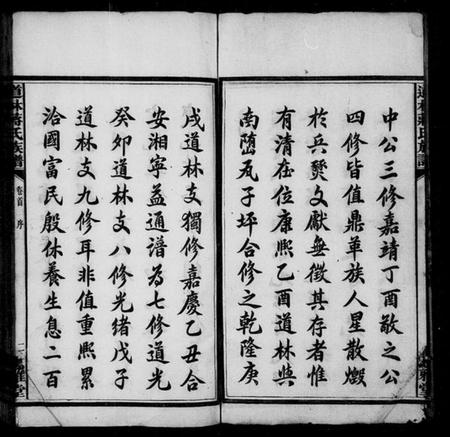 中公三修嘉靖丁酉敬之公
四修皆值鼎革族人星散燬
於兵燹文獻無徵其存者惟
有清在位康熙乙酉道林與
南塘瓦子坪合修之乾隆庚
戌道林支獨修嘉慶乙丑合
安湘寧益通譜為七修道光
癸卯道林支八修光緒戊子
道林支九修耳非值重熙累
洽國富民殷休養生息二百
道林蔣氏族譜
卷首
序